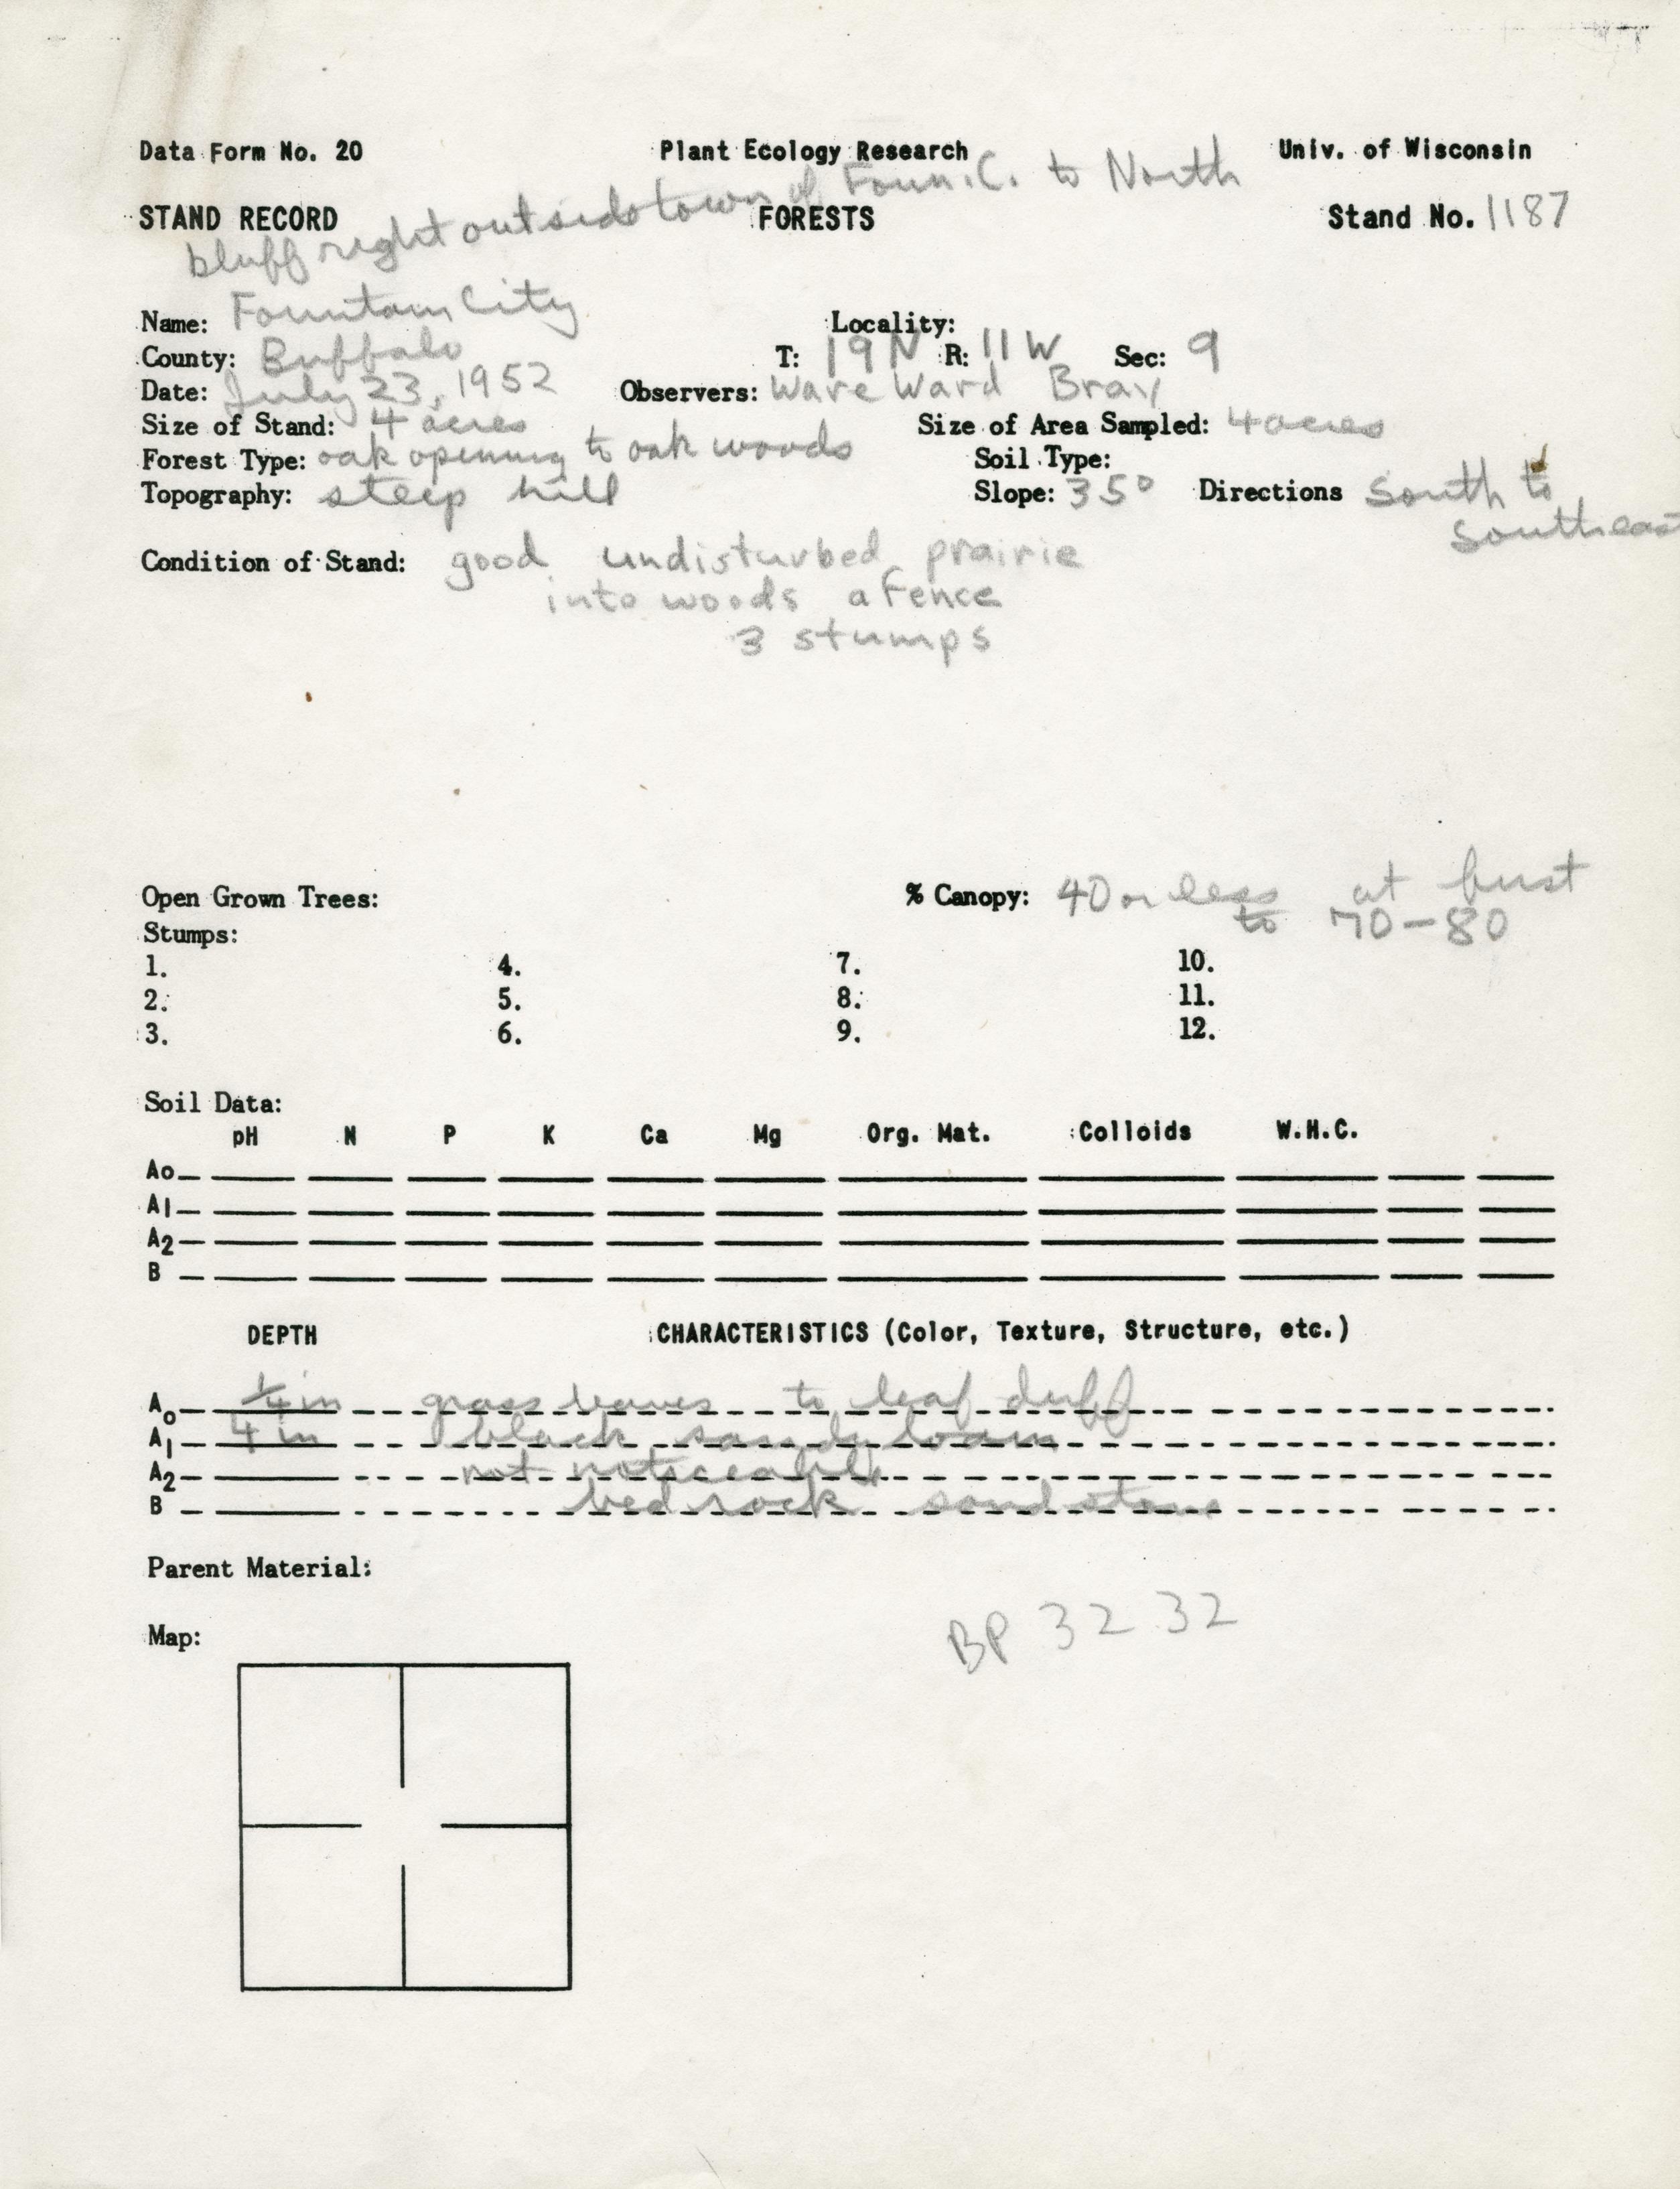 Data Form No. 20 Plant Ecology Research Univ. of Wisconsin
STAND RECORD FORESTS Stand No. 1187
bluff right outside town of Foun. C. to North
Name: Fountain City Locality:
County: Buffalo T: 19 N R: 11 W Sec: 9
Date: July 23, 1952 Observers: Ware Ward Bray
Size of Stand: 4 acres Size of Area Sampled: 4 acres
Forest Type: oak opening to oak woods Soil Type:
Topography: steep hill Slope: 35° Directions South to
Southeast
Condition of Stand: good undisturbed prairie
into woods a fence
3 stumps
Open Grown Trees: % Canopy: 40 or less at
Stumps: to 70-80
1. 4. 7. 10.
2. 5. 8. 11.
3. 6. 9. 12.
Soil Data:
pH N P K Ca Mg Org. Mat. Colloids W.H.C.
Ao
A1
A2
B
DEPTH CHARACTERISTICS (Color, Texture, Structure, etc.)
Ao 1/4 in grass leaves to leaf duff
A1 4 in black sandy loam
A2 not noticeable
B bed rock sand stone
Parent Material:
BP 32 32
Map: